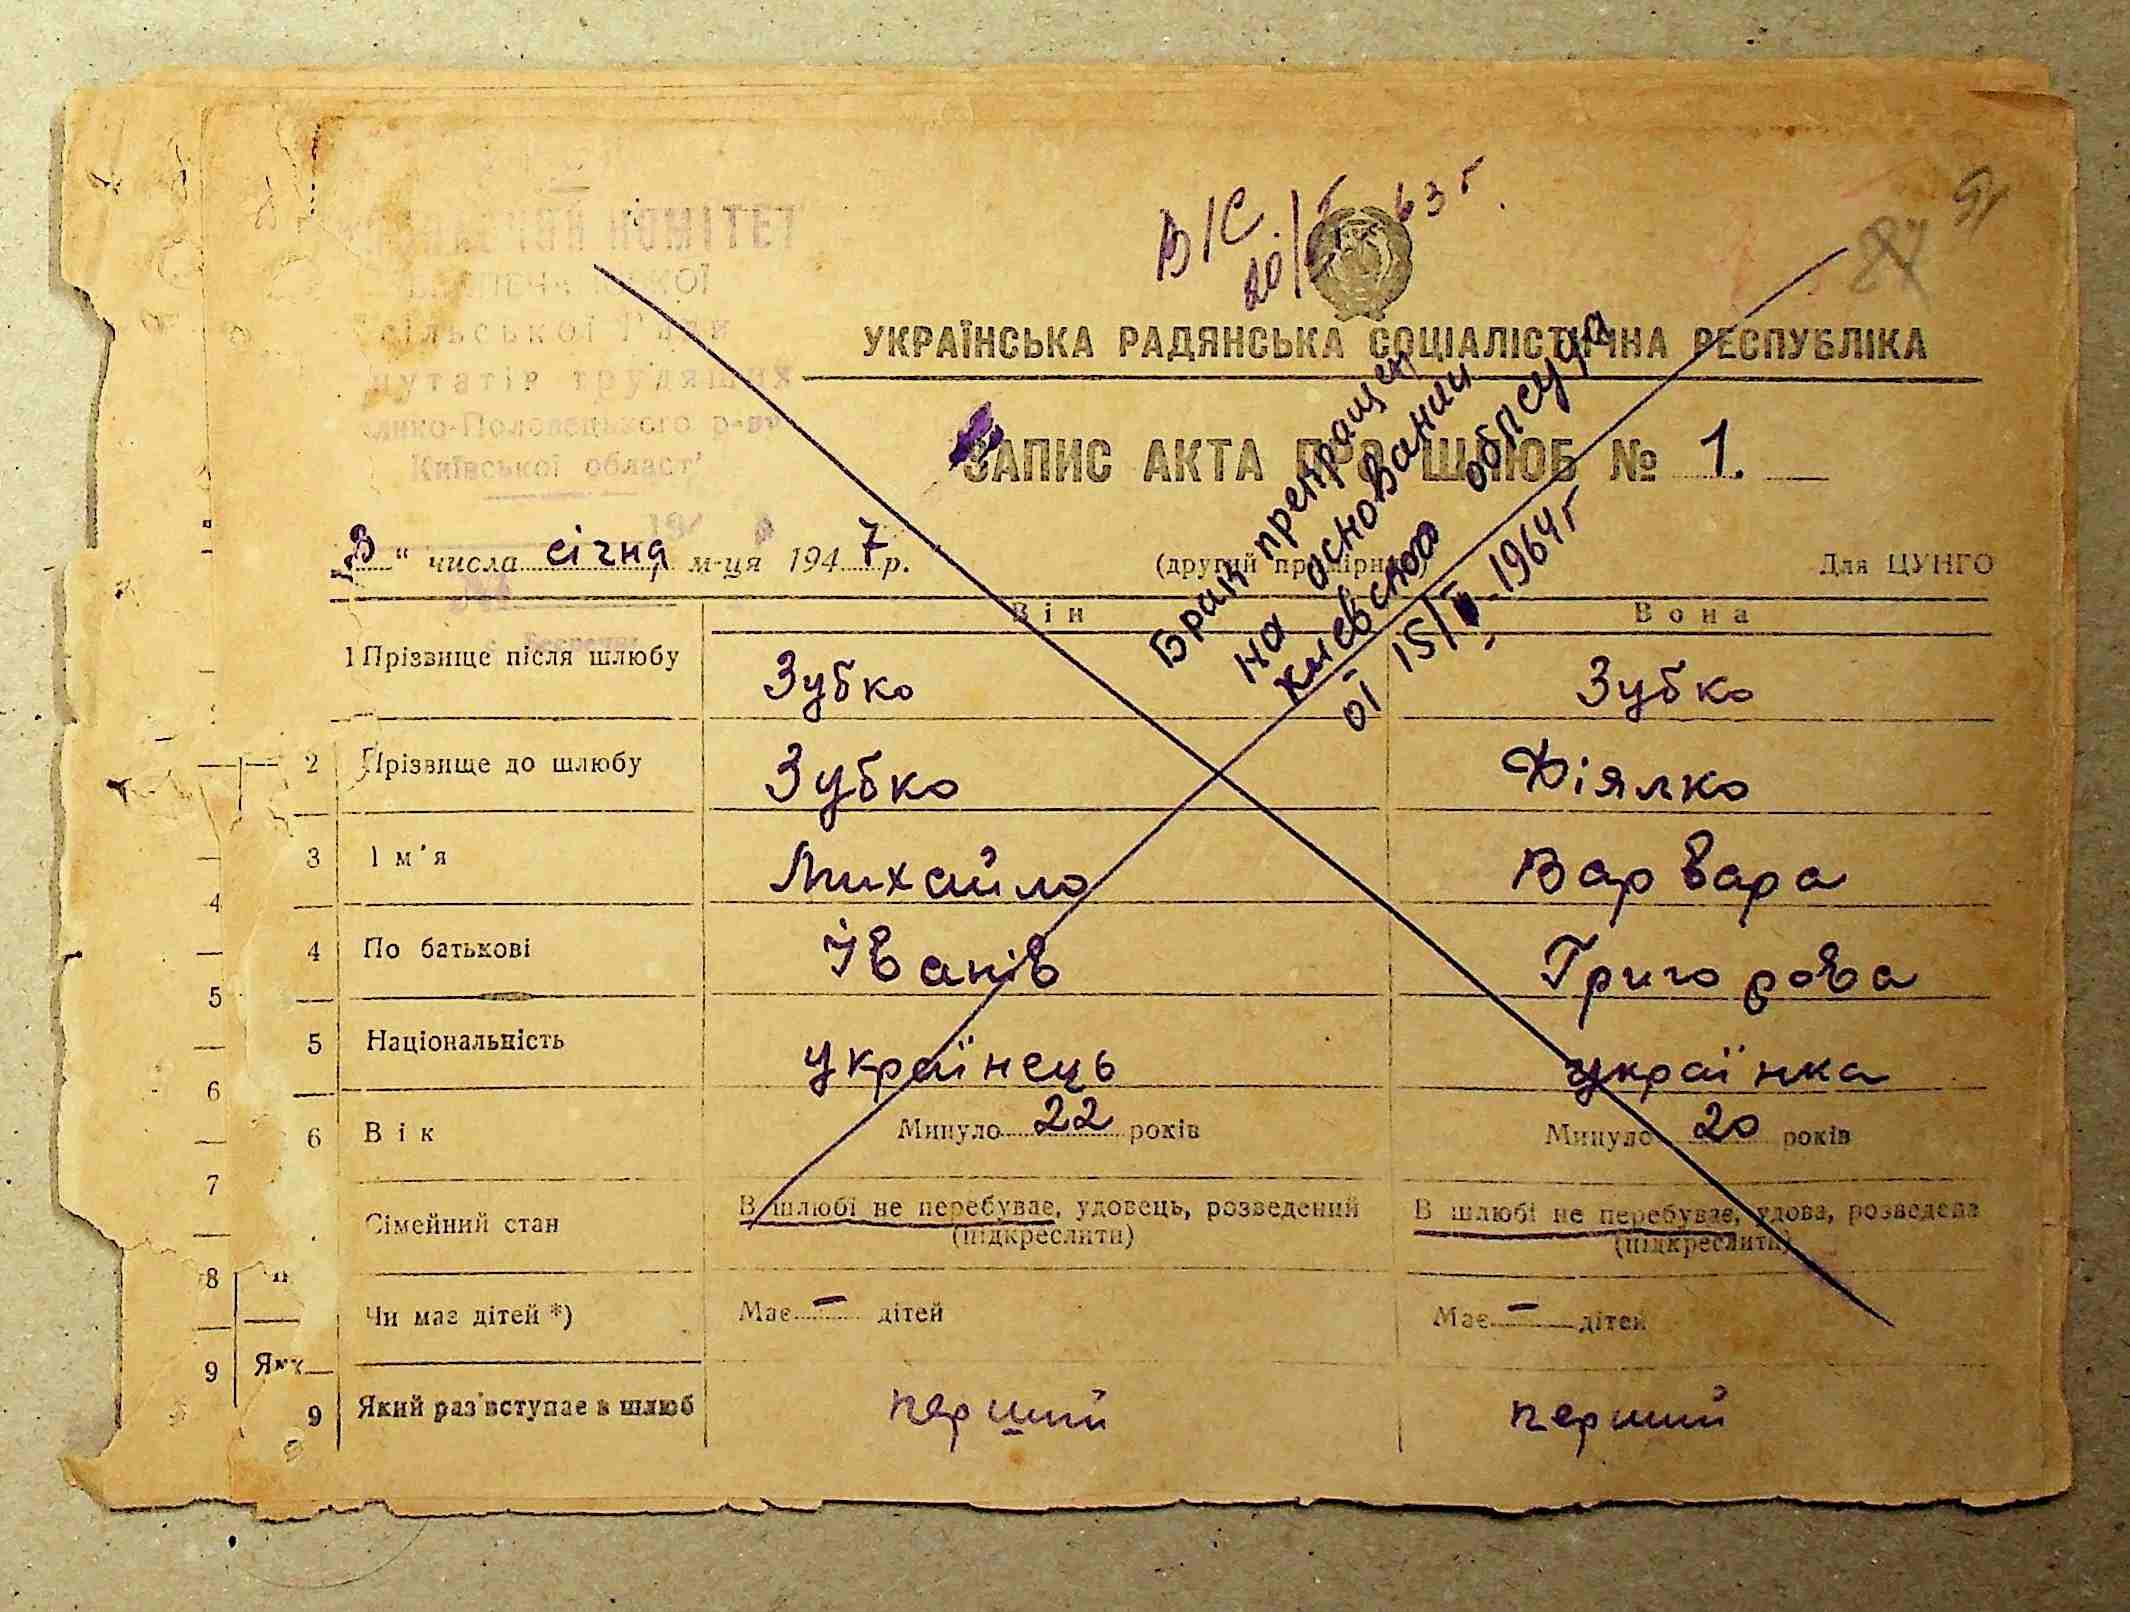 КОМІТЕТ
сільської Ради
трудящих
Половецького р-ну
Київської област
В/С 63 г
УКРАЇНСЬКА РАДЯНСЬКА СОЦІАЛІСТИЧНА РЕСПУБЛІКА
ЗАПИС АКТА ПРО ШЛЮБ № 1.
3 " числа січня м-ця 1947 р. (другий примірник) Для ЦУНГО
Брак прекращен
на основании
Киевского облсуда
от 15/ 1964 г
Він Вона
1 Прізвище після шлюбу Зубко Зубко
2 Прізвище до шлюбу Зубко Діялко
3 Ім'я Михайло Варвара
4 По батькові Іванів Григорова
5 Національність українець українка
6 Вік Минуло 22 років Минуло 20 років
Сімейний стан В шлюбі не перебуває, удовець, розведений В шлюбі не перебуває, удова, розведена
(підкреслити) (підкреслити)
Чи має дітей *) Має – дітей Має – дітей
9 Який раз вступає в шлюб перший перший